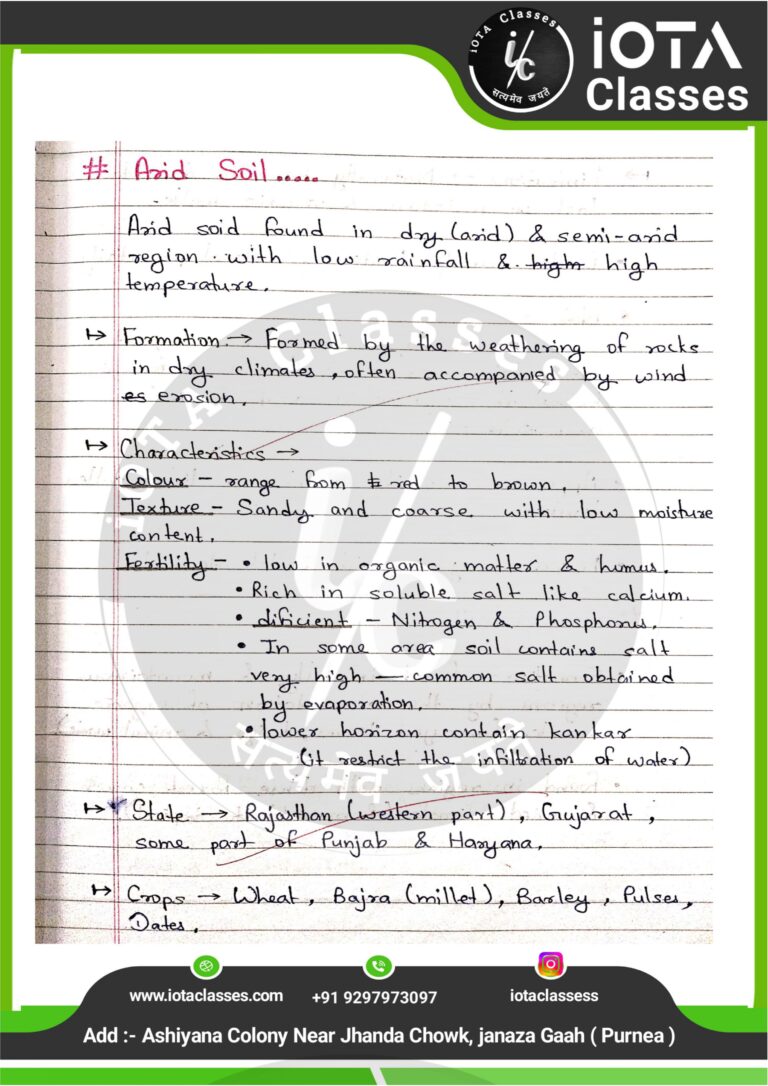 iOTA Classes
i/c
सत्यमेव जयते
iOTA
Classes
# Arid Soil.....
Arid soid found in dry (arid) & semi-arid
region with low rainfall & high high
temperature.
↦ Formation → Formed by the weathering of rocks
in dry climates, often accompanied by wind
es erosion.
↦ Characteristics →
Colour - range from red to brown.
Texture - Sandy and coarse with low moisture
content.
Fertility - • low in organic matter & humus.
• Rich in soluble salt like calcium.
• dificient - Nitrogen & Phosphorus.
• In some area soil contains salt
very high — common salt obtained
by evaporation.
• lower horizon contain kankar
(it restrict the infiltration of water)
↦ State → Rajasthan (western part), Gujarat,
some part of Punjab & Haryana.
↦ Crops → Wheat, Bajra (millet), Barley, Pulses,
Dates.
iOTA Classes
i/c
सत्यमेव जयते
www.iotaclasses.com
+91 9297973097
iotaclassess
Add :- Ashiyana Colony Near Jhanda Chowk, janaza Gaah ( Purnea )